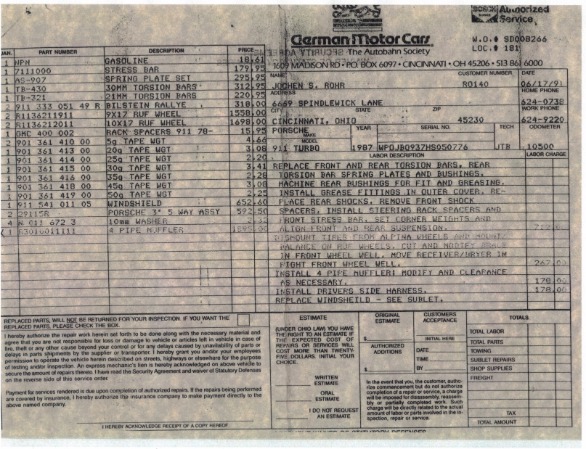 Authorized
Service
German Motor Cars
The Autobahn Society
W.O.# SD008266
LOC.# 181
1609 MADISON RD • P.O. BOX 6097 • CINCINNATI • OH 45206 • 513 861 6000
QUAN. PART NUMBER DESCRIPTION PRICE
1 NPN GASOLINE 18.61
1 7111006 STRESS BAR 179.95
1 AS-907 SPRING PLATE SET 295.95
1 TB-430 30MM TORSION BARS 312.95
1 TB-321 21MM TORSION BARS 220.95
2 911 333 051 49 R BILSTEIN RALLYE 318.00
2 R1136211911 9X17 RUF WHEEL 1558.00
2 R1136212011 10X17 RUF WHEEL 1698.00
1 GMC 400 002 RACK SPACERS 911 78- 15.95
2 901 361 410 00 5g TAPE WGT 4.66
1 901 361 413 00 20g TAPE WGT 3.08
1 901 361 414 00 25g TAPE WGT 2.20
1 901 361 415 00 30g TAPE WGT 3.41
1 901 361 416 00 35g TAPE WGT 2.28
1 901 361 418 00 45g TAPE WGT 3.08
1 901 361 419 00 50g TAPE WGT 2.25
1 911 541 011 05 WINDSHIELD 652.60
2 29115R PORSCHE 3" 5 WAY ASSY 592.50
4 N 011 672 3 10mm WASHER
4 PIPE MUFFLER
NAME
JOCHEN S. ROHR
CUSTOMER NUMBER
R0140
DATE
06/17/91
ADDRESS
6669 SPINDLEWICK LANE
HOME PHONE
624-0738
CITY STATE ZIP
CINCINNATI, OHIO 45230
WORK PHONE
624-9220
MAKE YEAR SERIAL NO. TECH ODOMETER
PORSCHE
MODEL
911 TURBO 1987 WP0JB0937HS050776 JTB 10500
LABOR DESCRIPTION LABOR CHARGE
REPLACE FRONT AND REAR TORSION BARS, REAR
TORSION BAR SPRING PLATES AND BUSHINGS.
MACHINE REAR BUSHINGS FOR FIT AND GREASING.
INSTALL GREASE FITTINGS IN OUTER COVER. RE-
PLACE REAR SHOCKS. REMOVE FRONT SHOCK
SPACERS. INSTALL STEERING RACK SPACERS AND
FRONT STRESS BAR. SET CORNER WEIGHTS AND
ALIGN FRONT AND REAR SUSPENSION.
DISMOUNT TIRES FROM ALPINA WHEELS AND MOUNT,
BALANCE ON RUF WHEELS. CUT AND MODIFY
IN FRONT WHEEL WELL. MOVE RECEIVER/DRYER IN
RIGHT FRONT WHEEL WELL.
INSTALL 4 PIPE MUFFLER: MODIFY AND CLEARANCE
AS NECESSARY. 178.00
INSTALL DRIVERS SIDE HARNESS. 178.00
REPLACE WINDSHEILD - SEE SUBLET.
REPLACED PARTS, WILL NOT BE RETURNED FOR YOUR INSPECTION. IF YOU WANT THE
REPLACED PARTS, PLEASE CHECK THE BOX.
I hereby authorize the repair work herein set forth to be done along with the necessary material and
agree that you are not responsible for loss or damage to vehicle or articles left in vehicle in case of
fire, theft or any other cause beyond your control or for any delays caused by unavailability of parts or
delays in parts shipments by the supplier or transporter. I hereby grant you and/or your employees
permission to operate the vehicle herein described on streets, highways or elsewhere for the purpose
of testing and/or inspection. An express mechanic's lien is hereby acknowledged on above vehicle to
secure the amount of repairs thereto. I have read the Security Agreement and Waiver of Statutory Defenses
on the reverse side of this service order.
Payment for services rendered is due upon completion of authorized repairs. If the repairs being performed
are covered by insurance, I hereby authorize the insurance company to make payment directly to the
above named company.
I HEREBY ACKNOWLEDGE RECEIPT OF A COPY HEREOF
ESTIMATE
UNDER OHIO LAW YOU HAVE
THE RIGHT TO AN ESTIMATE IF
THE EXPECTED COST OF
REPAIRS OR SERVICES WILL
COST MORE THAN TWENTY-
FIVE DOLLARS. INITIAL YOUR
CHOICE.
WRITTEN
ESTIMATE
ORAL
ESTIMATE
I DO NOT REQUEST
AN ESTIMATE
ORIGINAL
ESTIMATE
CUSTOMERS
ACCEPTANCE
$
INITIAL HERE
AUTHORIZED
ADDITIONS
DATE
TIME
$ BY
In the event that you, the customer, autho-
rize commencement but do not authorize
completion of a repair or service, a charge
will be imposed for disassembly, reassem-
bly or partially completed work. Such
charge will be directly related to the actual
amount of labor or parts involved in the in-
spection, repair or service.
TOTALS
TOTAL LABOR
TOTAL PARTS
TOWING
SUBLET REPAIRS
SHOP SUPPLIES
FREIGHT
TAX
TOTAL AMOUNT